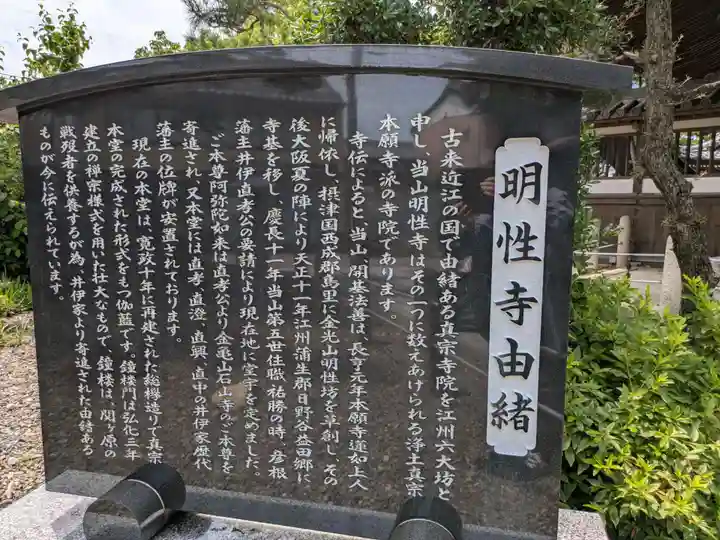 明性寺由緒
古来近江の国で由緒ある真宗寺院を江州六大坊と
申し、当山明性寺はその一つに数えあげられる浄土真宗
本願寺派の寺院であります。
寺伝によると、当山、開基法善は、長亨元年本願寺蓮如上人
に帰依し、摂津国西成郡馬里に金光山明性坊を草創し、その
後大阪夏の陣により天正十一年江州蒲生郡日野谷益田郷に
寺基を移し、慶長十一年当山第五世住職祐勝の時、彦根
藩主井伊直孝公の要請により現在地に堂宇を定めました。
ご本尊阿弥陀如来は直孝公より金亀山石山寺のご本尊を
寄進され、又本堂には直孝、直澄、直興、直中の井伊家歴代
藩主の位牌が安置されております。
現在の本堂は、寛政十年に再建された総欅造りで真宗
本堂の完成された形式をもつ伽藍です。鐘楼門は弘化三年
建立の禅宗様式を用いた壮大なもので、鐘楼は、関ヶ原の
戦歿者を供養するが為、井伊家より寄進された由緒ある
ものが今に伝えられています。